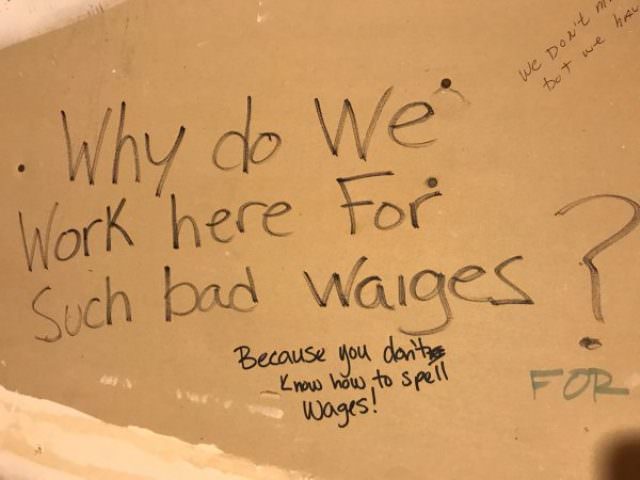 We DON't
bot we
. Why do We
Work here For
Such bad Waiges ?
Because you don't
Know how to spell
Wages!
FOR